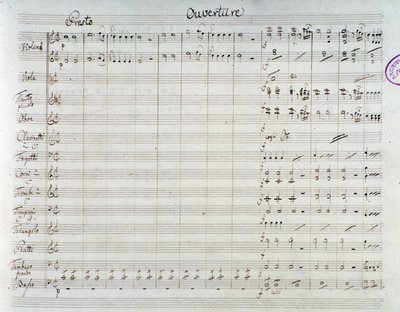 Presto Ouverture
Violini
Viole
Flauto
piccolo
Oboe
Clarinetti
Fagotti
Corni
Trombe
Timpani
Triangolo
Piatti
Tamburo
grande
Bassi